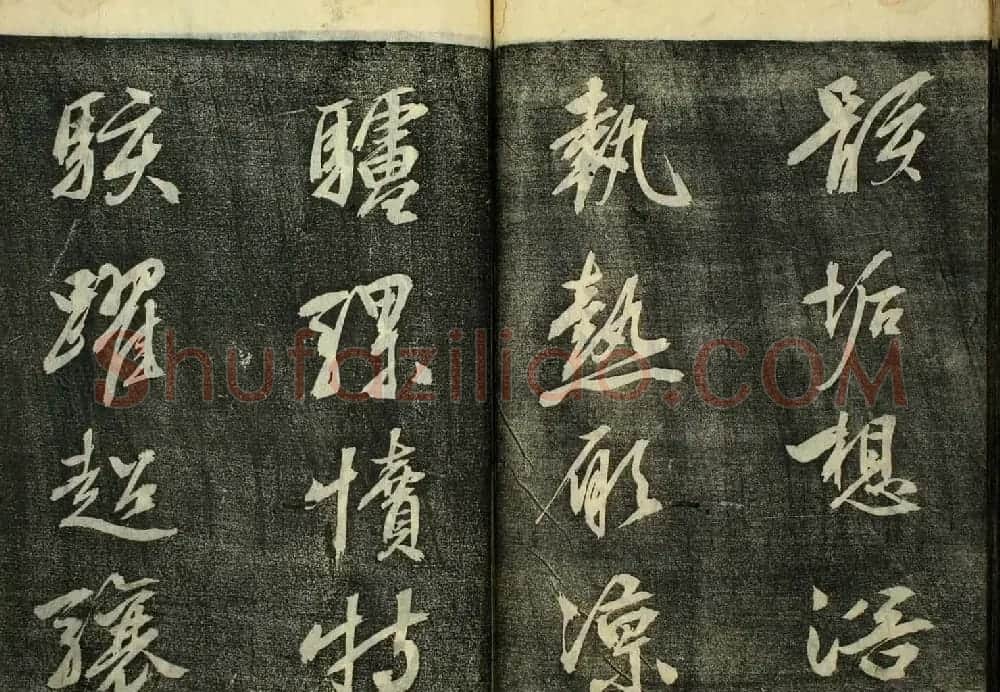 骸垢想浴
執熱願涼
驢騾犢特
駭躍超驤
Shufaziliao.COM